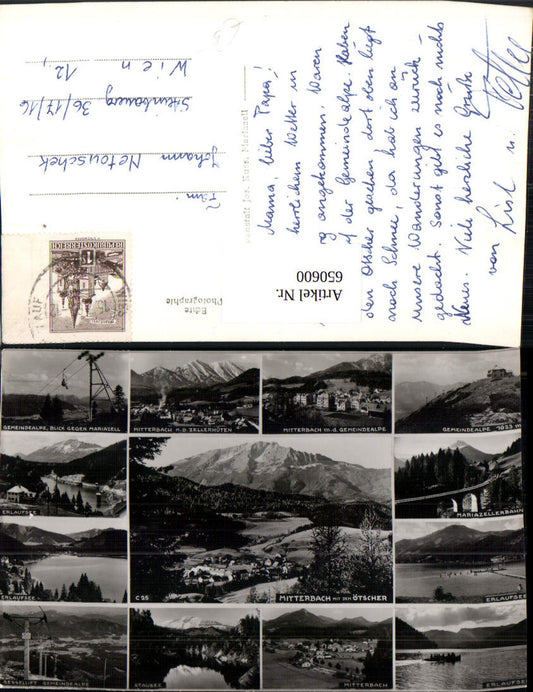 Mama, lieber Papa!
herrlichem Wetter in
ng angekommen. Waren
f der Gemeindealpe. Haben
den Ötscher gesehen dort oben liegt
noch Schnee, da hab ich an
unsere Wanderungen zurück-
gedacht. Sonst gibt es noch nichts
Neues. Viele herzliche Grüße
von Lisl u.
Fam.
Johann Netouschek
36/17/16
Wien 12,
REPUBLIK ÖSTERREICH
Echte
Photographie
Artikel Nr.
650600
GEMEINDEALPE, BLICK GEGEN MARIAZELL
MITTERBACH M.D. ZELLERHÜTEN
MITTERBACH M.D. GEMEINDEALPE
GEMEINDEALPE 1623 m
ERLAUFSEE
MARIAZELLERBAHN
ERLAUFSEE
C 25
MITTERBACH MIT DEM ÖTSCHER
ERLAUFSEE
SESSELLIFT GEMEINDEALPE
STAUSEE
MITTERBACH
ERLAUFSEE